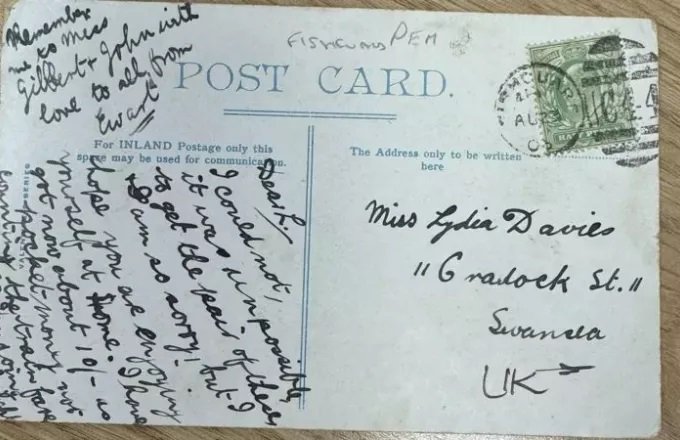 Remember
me to Miss
Gilbert & John with
love to all from
Ewart
PEM
POST CARD.
For INLAND Postage only this
space may be used for communication.
The Address only to be written
here
AU 3
Dear L.
I could not,
it was impossible
to get the pair of these.
I am so sorry! but I
hope you are enjoying
yourself at home. I have
got now about 10/- as
pocket-money not
counting the train fare
Miss Lydia Davies
11 Cradock St.
Swansea
UK